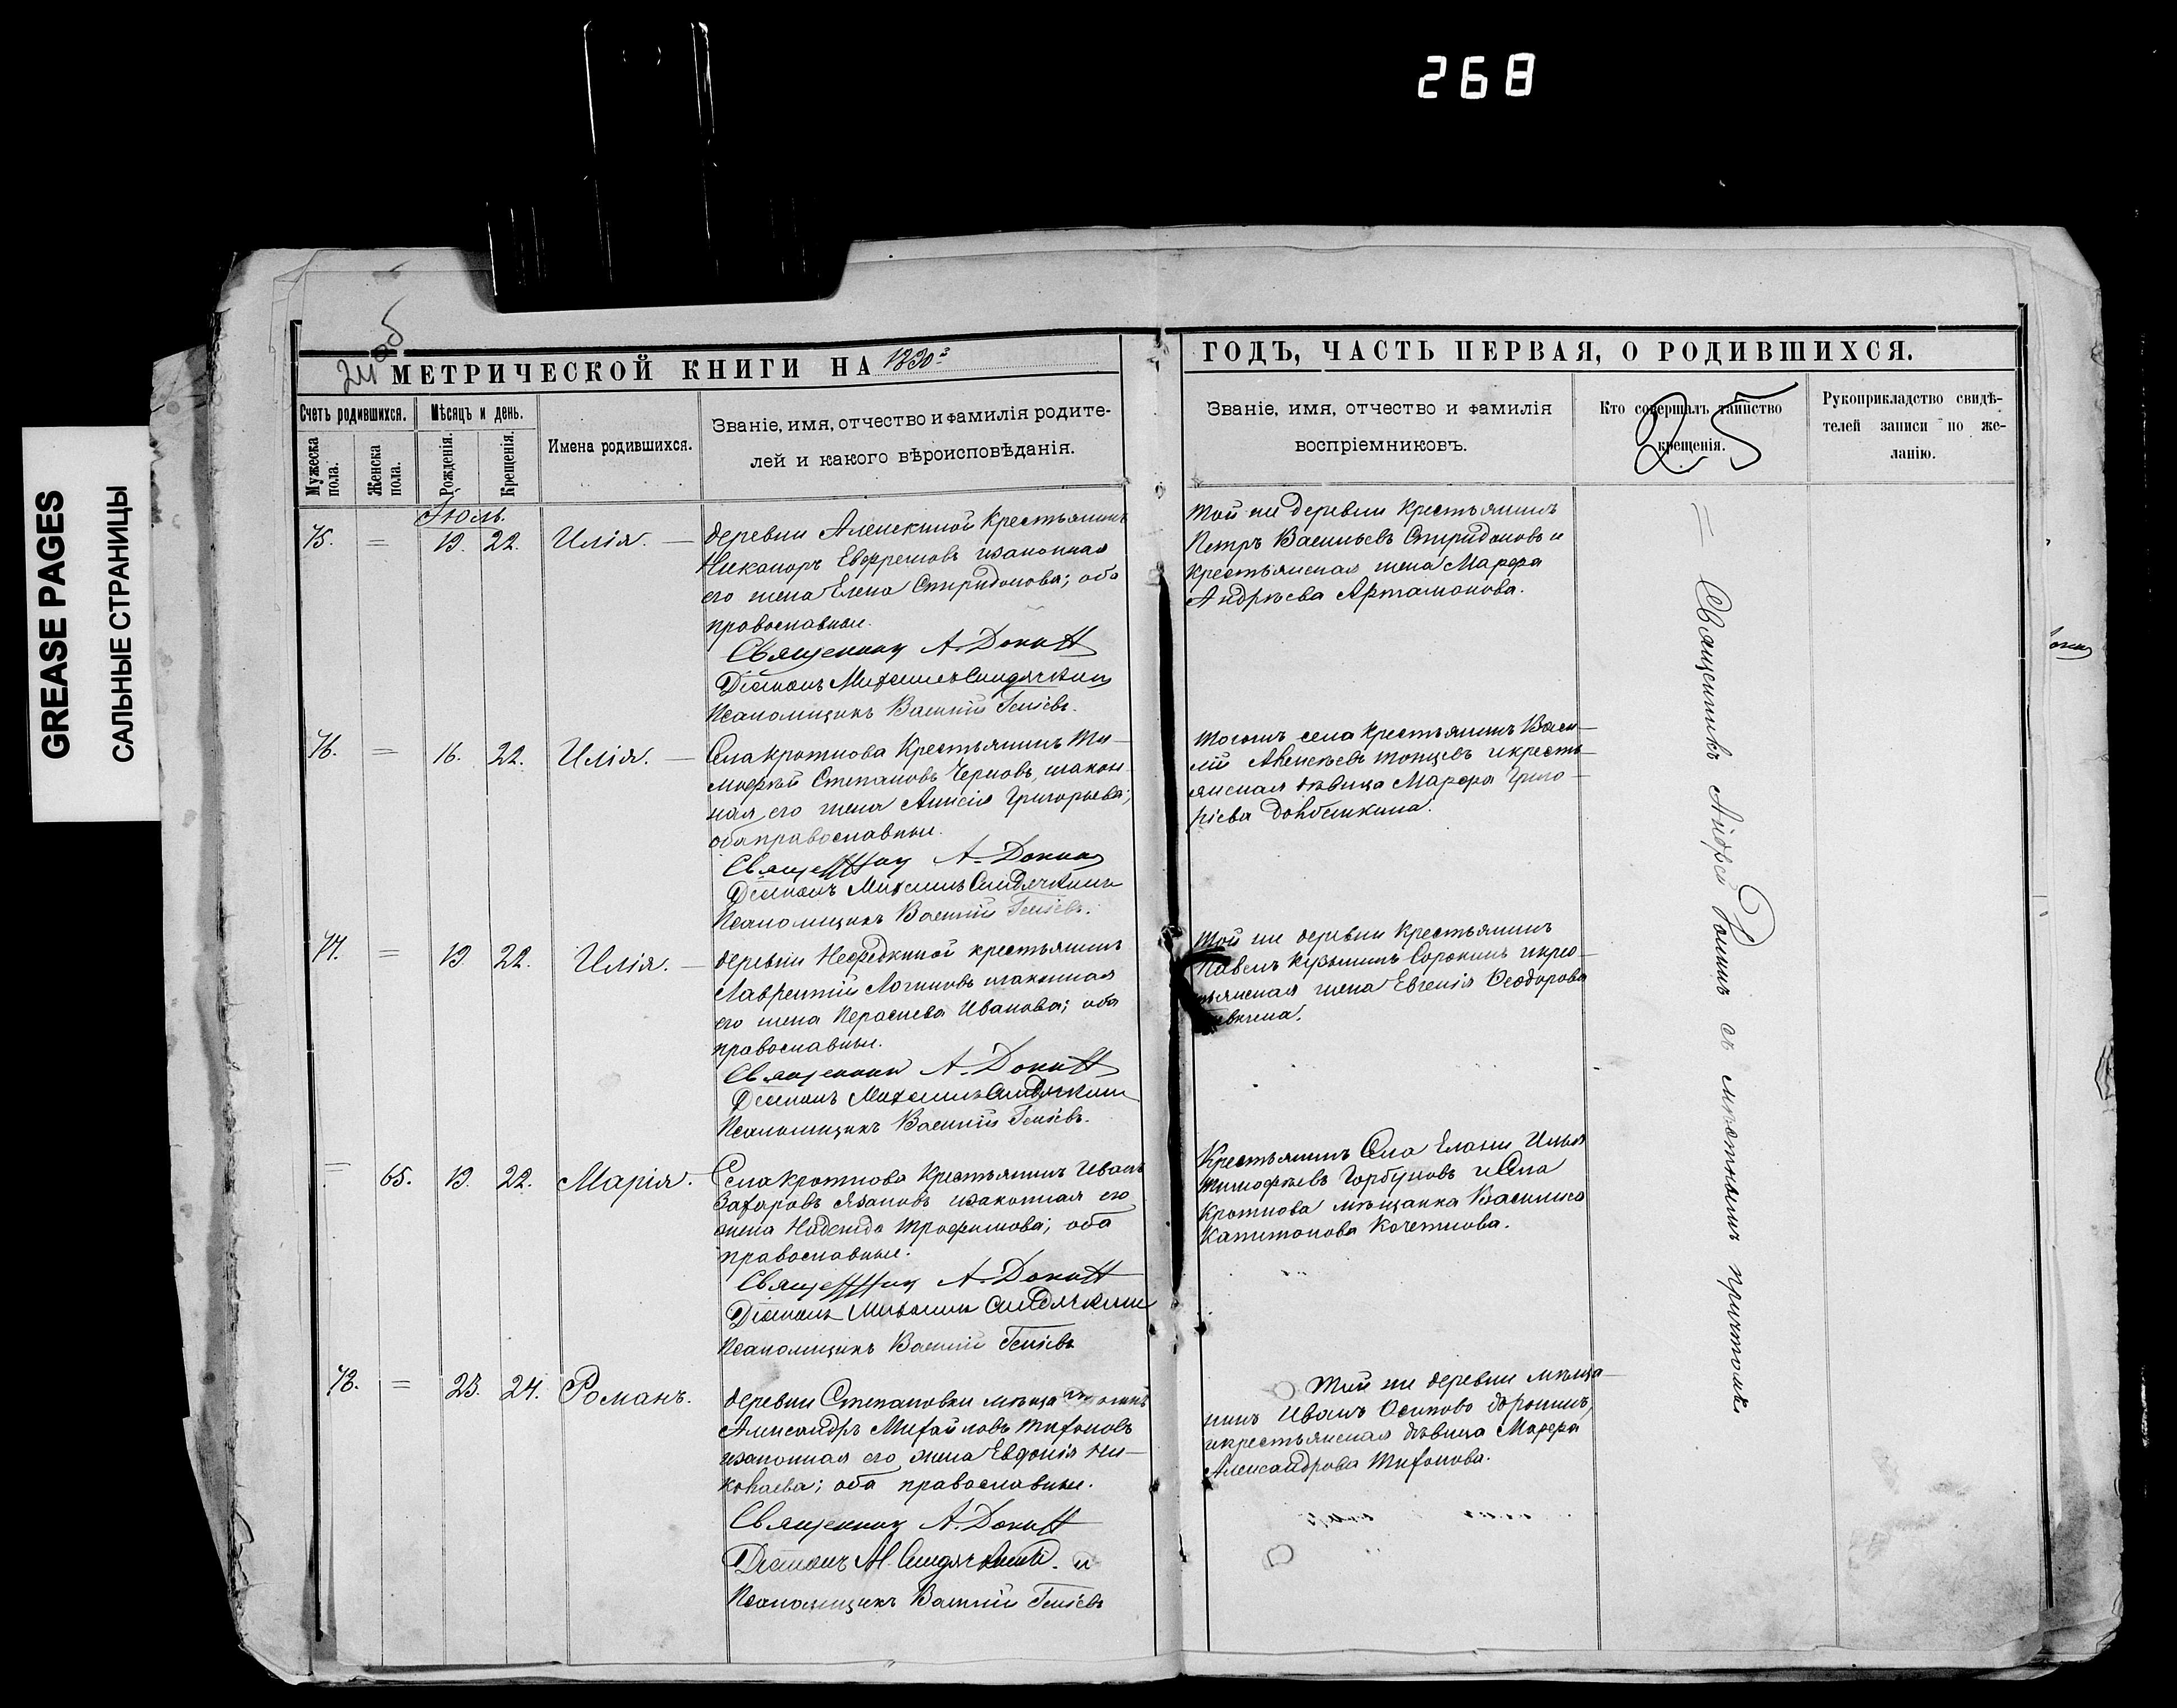 268
GREASE PAGES
САЛЬНЫЕ СТРАНИЦЫ
24 об
МЕТРИЧЕСКОЙ КНИГИ НА
ГОДЪ, ЧАСТЬ ПЕРВАЯ, О РОДИВШИХСЯ.
25
Счетъ родившихся.
Мужеска пола.
Женска пола.
Мѣсяцъ и день.
Рожденія.
Крещенія.
Имена родившихся.
Званіе, имя, отчество и фамилія родите-
лей и какого вѣроисповѣданія.
Званіе, имя, отчество и фамилія
воспріемниковъ.
Кто совершалъ таинство
крещенія.
Рукоприкладство свидѣ-
телей записи по же-
ланію.
Іюль.
75. = 19. 22. Илія. —
деревни Алемкиной крестьянинъ
Никаноръ Ефремовъ изаконная
его жена Елена Спиридонова; оба
православные.
Священник А. Донин
Діаконъ Михаилъ
Псаломщикъ Василій
Той же деревни крестьянинъ
Петръ Васильевъ Спиридоновъ и
крестьянская жена Марфа
Андреева Артамонова.
76. = 16. 22. Илія. —
Села Кроткова Крестьянинъ Ти-
мофей Степановъ Черновъ, изакон-
ная его жена Анисія Григорьева;
оба православные.
Священник А. Донин
Діаконъ Михаилъ
Псаломщикъ Василій
Тогожъ села крестьянинъ Васи-
лій Алексѣевъ и кресть-
янская дѣвица Марфа Григо-
рьева
77. = 19. 22. Илія. —
деревни Нефедкиной крестьянинъ
Лаврентій Логиновъ изаконная
его жена Параскева Иванова; оба
православные.
Священник А. Донин
Діаконъ Михаилъ
Псаломщикъ Василій
Той же деревни Крестьянинъ
Павелъ Кузьминъ Сорокинъ икрес-
тьянская жена Евгенія Ѳеодорова
= 65. 19. 22. Марія.
Села Кроткова Крестьянинъ Иванъ
Захаровъ изаконная его
жена Надежда Трофимова; оба
православные.
Священник А. Донин
Діаконъ Михаилъ
Псаломщикъ Василій
Крестьянинъ Села Елани Илья
Тимофѣевъ Горбуновъ и Села
Кроткова мѣщанка Василиса
Капитонова Кочеткова.
78. = 23. 24. Романъ.
деревни Степановки
Александръ Михайловъ Тихоновъ
изаконная его жена Евдокія Ни-
колаева; оба православные.
Священник А. Донин
Діаконъ М.
Псаломщикъ Василій
Той же деревни мѣща-
нинъ Иванъ Осиповъ Дороnинъ,
икрестьянская дѣвица Марфа
Александрова Тихонова.
= Священникъ Андрей Донинъ съ мѣстнымъ причтомъ